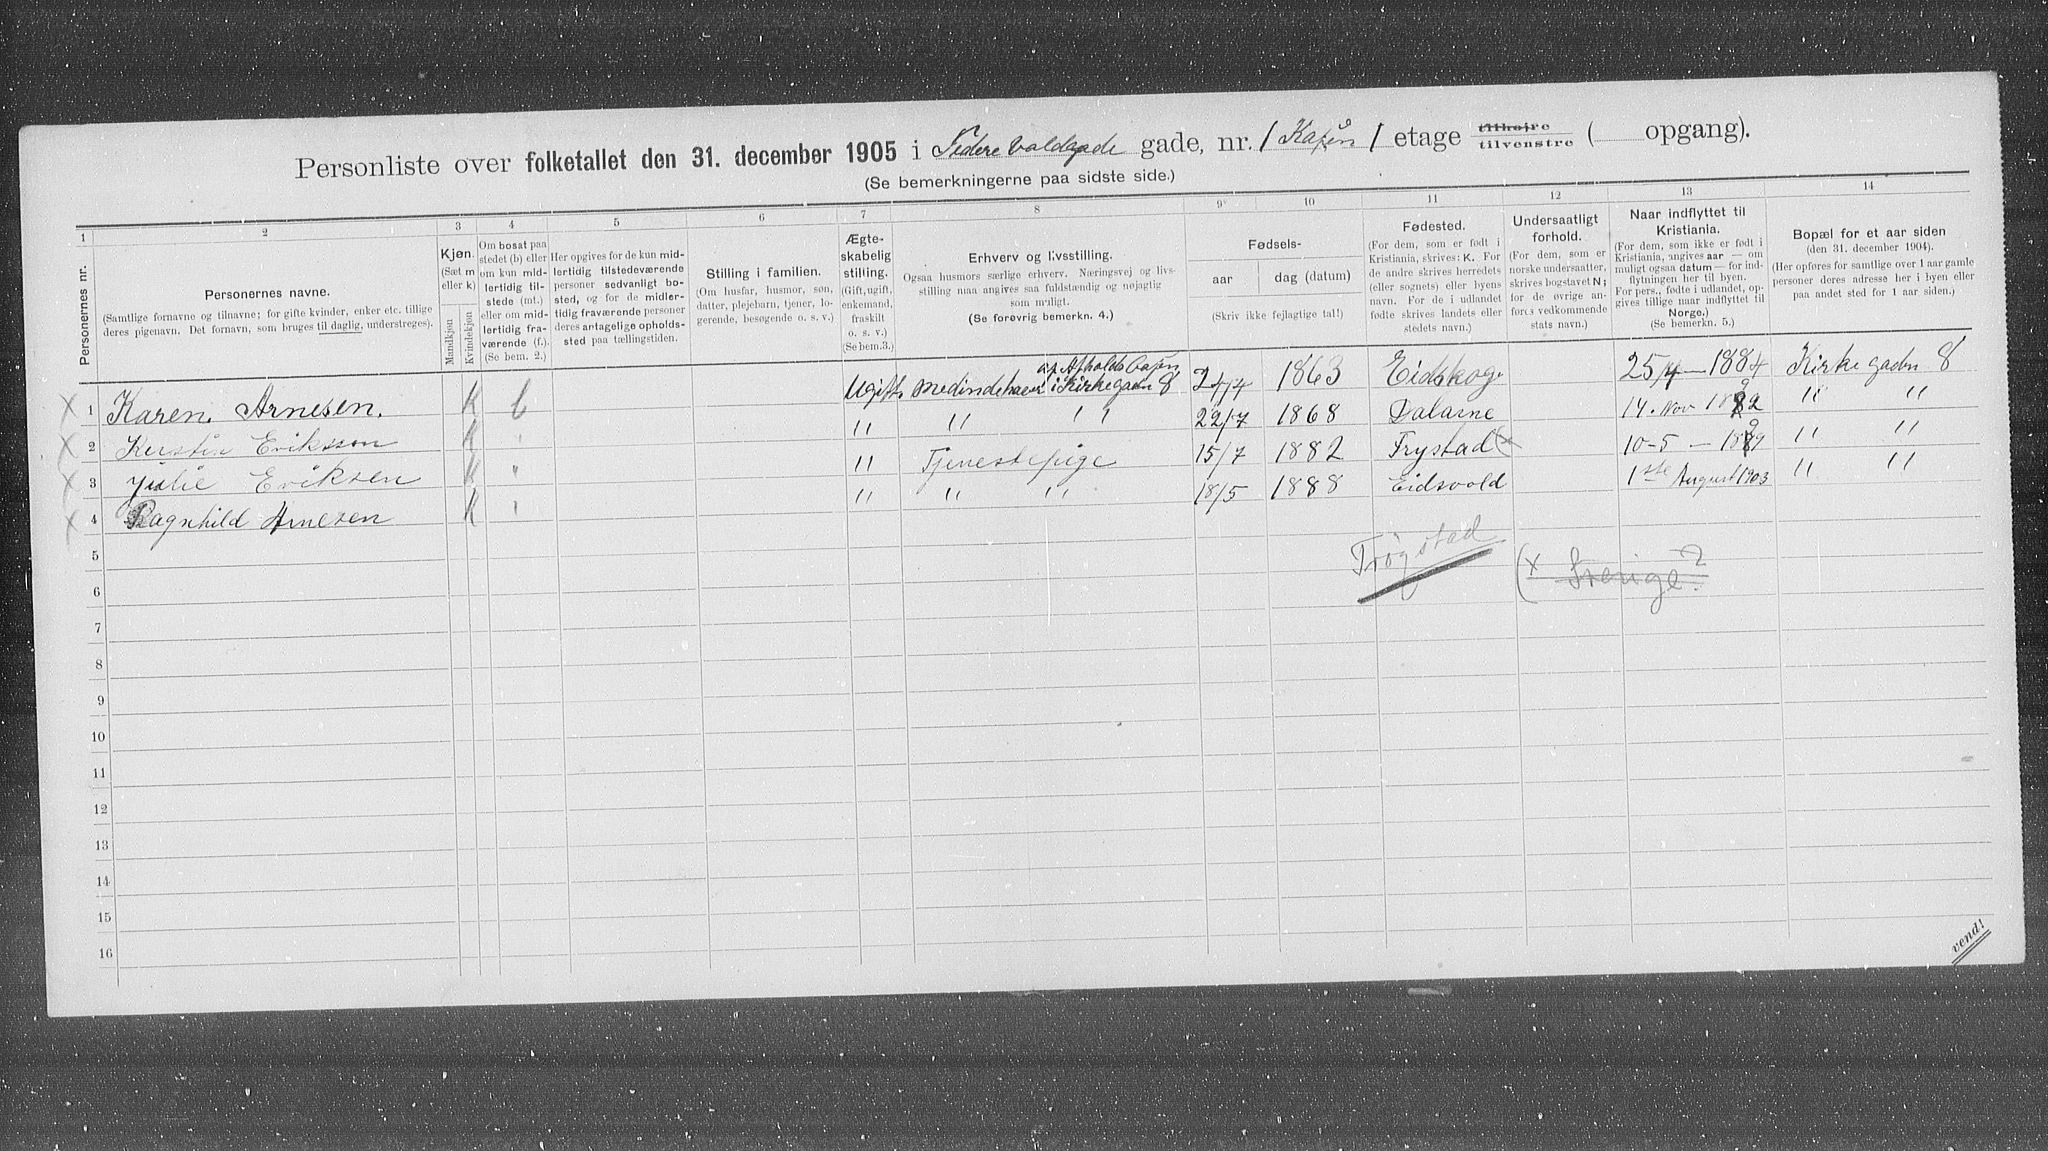 Personliste over folketallet den 31. december 1905 i Nedere Voldgade gade, nr. 1 etage tilhøjre tilvenstre ( opgang).
(Se bemerkningerne paa sidste side.)
1 2 3 4 5 6 7 8 9 10 11 12 13 14
Personernes nr.
Personernes navne.
(Samtlige fornavne og tilnavne; for gifte kvinder, enker etc. tillige
deres pigenavn. Det fornavn, som bruges til daglig, understreges).
Kjøn.
(Sæt m
eller k)
Mandkjøn
Kvindekjøn
Om bosat paa
stedet (b) eller
om kun mid-
lertidig til-
stede (mt.)
eller om mid-
lertidig fra-
værende (f.).
(Se bem. 2.)
Her opgives for de kun mid-
lertidig tilstedeværende
personer sedvanligt bo-
sted, og for de midler-
tidig fraværende personer
deres antagelige opholds-
sted paa tællingstiden.
Stilling i familien.
(Om husfar, husmor, søn,
datter, plejebarn, tjener, lo-
gerende, besøgende o. s. v.)
Ægte-
skabelig
stilling.
(Gift, ugift,
enkemand,
fraskilt
o. s. v.)
(Se bem.3.)
Erhverv og livsstilling.
Ogsaa husmors særlige erhverv. Næringsvej og livs-
stilling maa angives saa fuldstændig og nøjagtig
som muligt.
(Se forøvrig bemerkn. 4.)
Fødsels-
aar dag (datum)
(Skriv ikke fejlagtige tal!)
Fødested.
(For dem, som er født i
Kristiania, skrives: K. For
de andre skrives herredets
(eller sognets) eller byens
navn. For de i udlandet
fødte skrives landets eller
stedets navn.)
Undersaatligt
forhold.
(For dem, som er
norske undersaatter,
skrives bogstavet N;
for de øvrige an-
føres vedkommende
stats navn.)
Naar indflyttet til
Kristiania.
(For dem, som ikke er født i
Kristiania, angives aar — om
muligt ogsaa datum — for ind-
flytningen her til byen.
For pers., fødte i udlandet, op-
gives tillige naar indflyttet til
Norge.)
(Se bemerkn. 5.)
Bopæl for et aar siden
(den 31. december 1904).
(Her opføres for samtlige over 1 aar gamle
personer deres adresse her i byen eller
paa andet sted for 1 aar siden.)
1 Karen Arnesen. K b Ugift. medindehaver i Kirkegaden 8 24/4 1863 Eidskog. 25/4 — 1884 Kirkegaden 8
2 Kerstin Eriksson K " " " " 22/7 1868 Dalarne 14. Nov 1892 " "
3 Julie Eriksen K " " Tjenestepige 15/7 1882 Trystad (x 10-5 — 1899 " "
4 Ragnhild Arnesen K " " " " 18/5 1888 Eidsvold 1ste August 1903 " "
Trøgstad
(x Sverige?
5
6
7
8
9
10
11
12
13
14
15
16
vend!